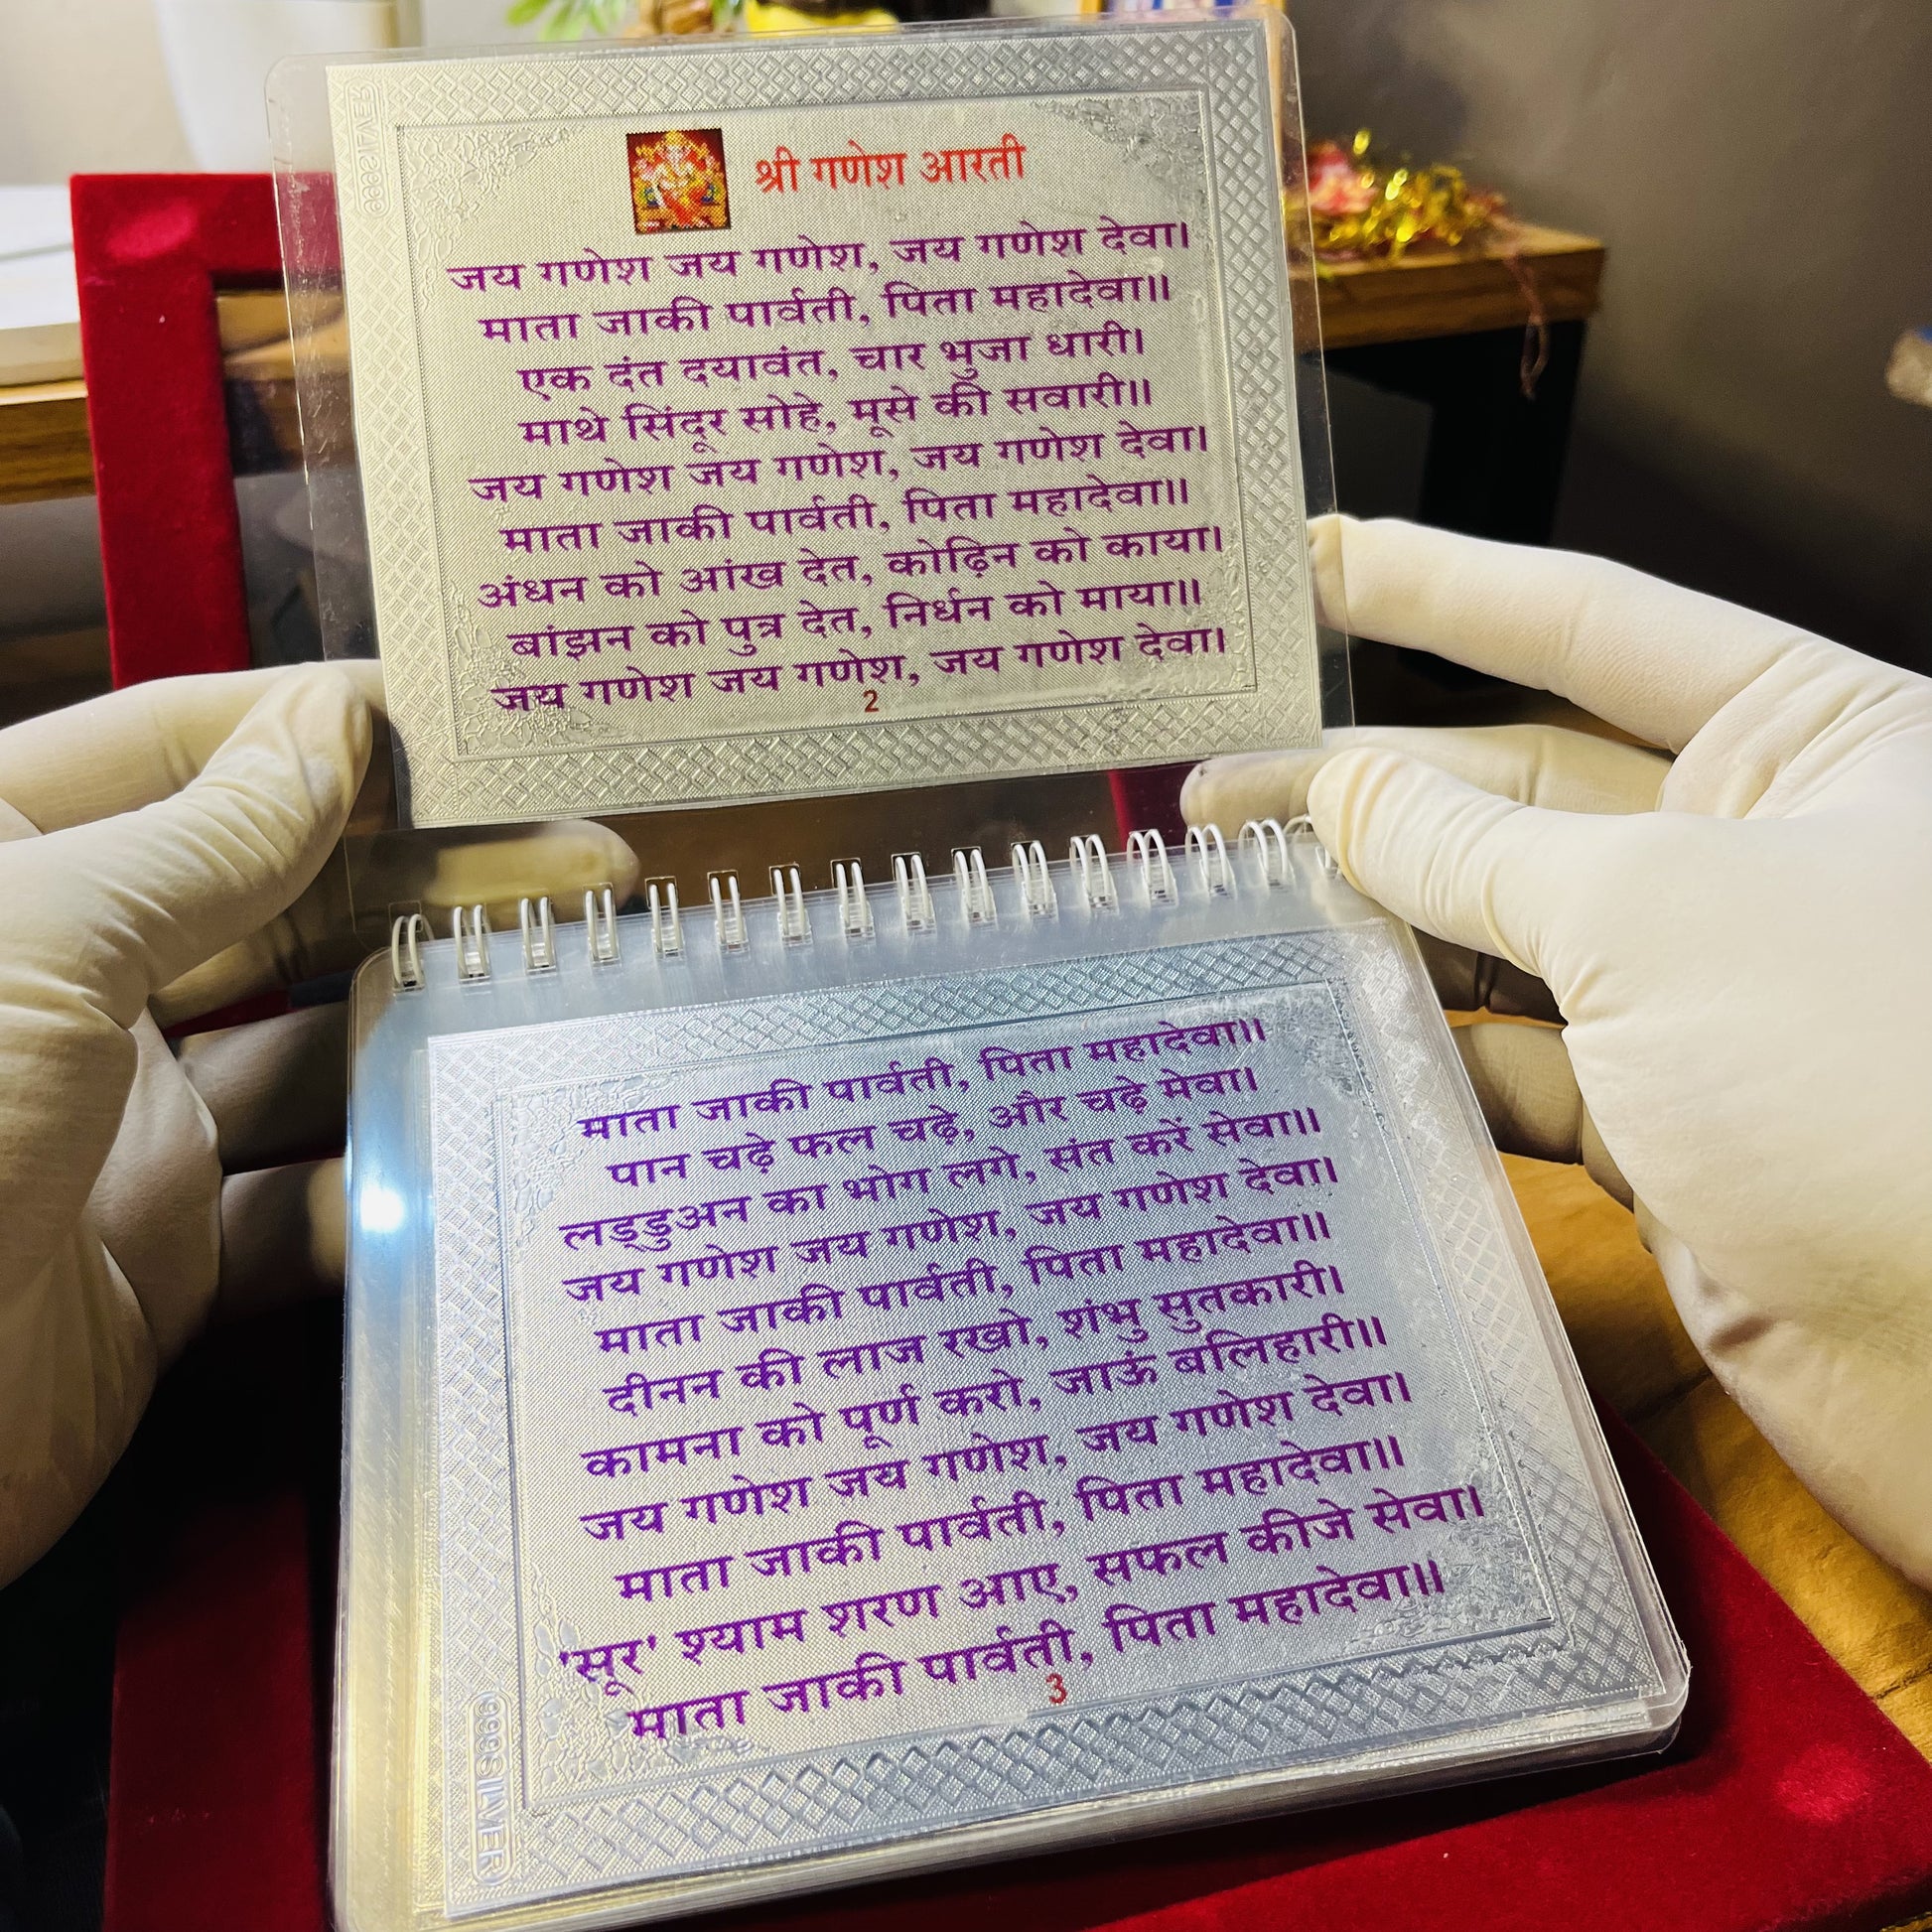 999SILVER
श्री गणेश आरती
जय गणेश जय गणेश, जय गणेश देवा।
माता जाकी पार्वती, पिता महादेवा॥
एक दंत दयावंत, चार भुजा धारी।
माथे सिंदूर सोहे, मूसे की सवारी॥
जय गणेश जय गणेश, जय गणेश देवा।
माता जाकी पार्वती, पिता महादेवा॥
अंधन को आंख देत, कोढ़िन को काया।
बांझन को पुत्र देत, निर्धन को माया॥
जय गणेश जय गणेश, जय गणेश देवा।
2
माता जाकी पार्वती, पिता महादेवा॥
पान चढ़े फल चढ़े, और चढ़े मेवा।
लड्डुअन का भोग लगे, संत करें सेवा॥
जय गणेश जय गणेश, जय गणेश देवा।
माता जाकी पार्वती, पिता महादेवा॥
दीनन की लाज रखो, शंभु सुतकारी।
कामना को पूर्ण करो, जाऊं बलिहारी॥
जय गणेश जय गणेश, जय गणेश देवा।
माता जाकी पार्वती, पिता महादेवा॥
'सूर' श्याम शरण आए, सफल कीजे सेवा।
माता जाकी पार्वती, पिता महादेवा॥
3
999SILVER